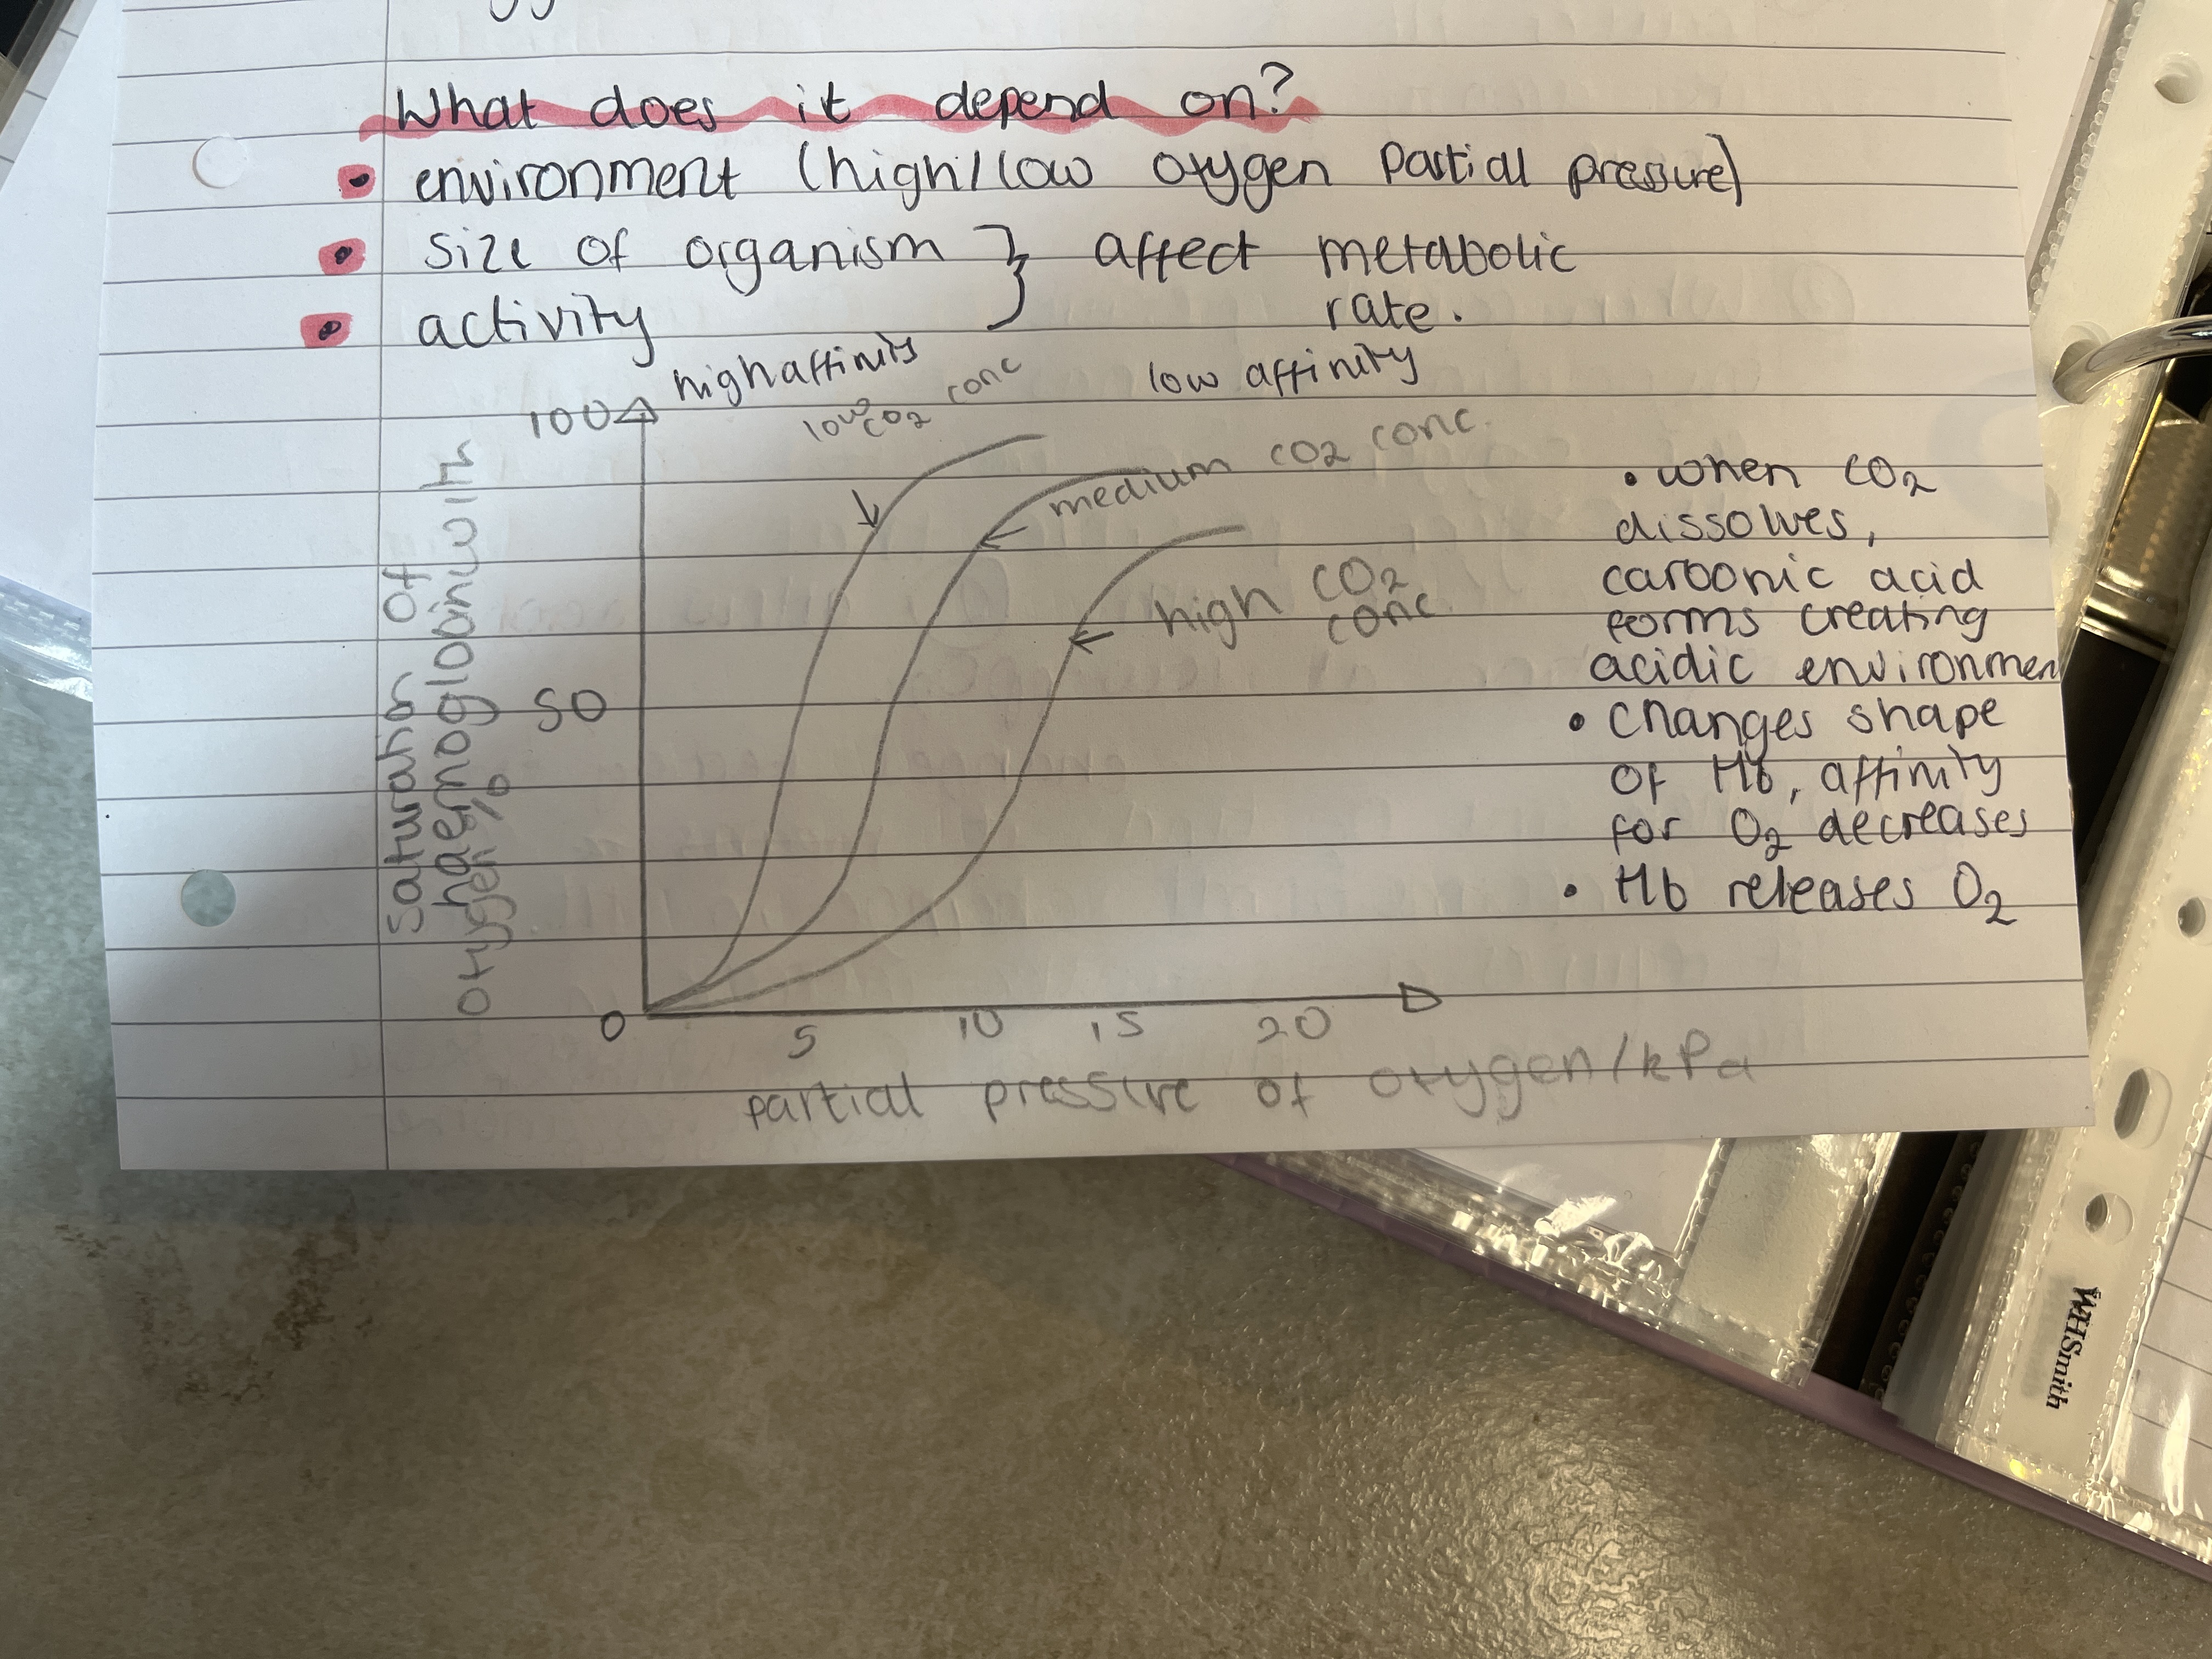 What does it depend on?
• environment (high/low oxygen partial pressure)
• size of organism } affect metabolic
• activity rate.
high affinity low affinity
low CO2 conc
100
medium CO2 conc.
high CO2
conc
saturation of
haemoglobin with
oxygen %
50
0
5 10 15 20
partial pressure of oxygen/kPa
• when CO2
dissolves,
carbonic acid
forms creating
acidic environmen
• changes shape
of Hb, affinity
for O2 decreases
• Hb releases O2
WHSmith